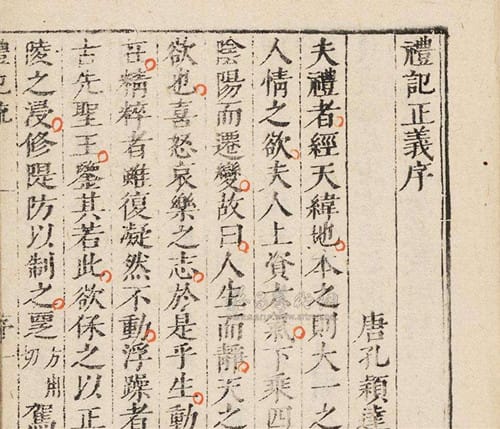 禮記正義序
唐孔穎達
夫禮者經天緯地本之則大一之
人情之欲夫人上資六氣下乘四
陰陽而遷變故曰人生而靜天之
欲也喜怒哀樂之志於是乎生動
在精粹者雖復凝然不動浮躁者
古先聖王鑒其若此欲保之以正
陵之浸修隄防以制之覂方用切駕
禮記疏